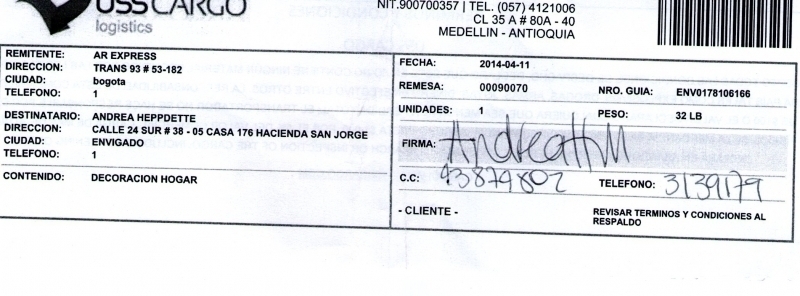 USSCARGO
logistics
NIT.900700357 | TEL. (057) 4121006
CL 35 A # 80A - 40
MEDELLIN - ANTIOQUIA
REMITENTE: AR EXPRESS
DIRECCION: TRANS 93 # 53-182
CIUDAD: bogota
TELEFONO: 1
DESTINATARIO: ANDREA HEPPDETTE
DIRECCION: CALLE 24 SUR # 38 - 05 CASA 176 HACIENDA SAN JORGE
CIUDAD: ENVIGADO
TELEFONO: 1
CONTENIDO: DECORACION HOGAR
FECHA: 2014-04-11
REMESA: 00090070 NRO. GUIA: ENV0178106166
UNIDADES: 1 PESO: 32 LB
FIRMA: AndreaHM
C.C: 43879802 TELEFONO: 3139179
- CLIENTE - REVISAR TERMINOS Y CONDICIONES AL
RESPALDO